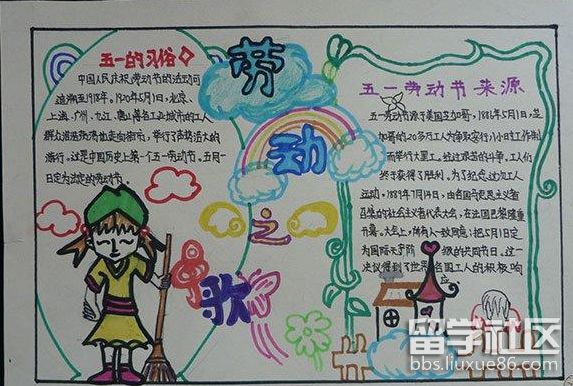 五一的习俗
中国人民庆祝劳动节的活动可
追溯至1918年。1920年5月1日，北京、
上海、广州、九江、唐山等各工业城市的工人
群众浩浩荡荡地走向街市，举行了声势浩大的
游行，这是中国历史上第一个五一劳动节。五月一
日定为法定的劳动节。
劳动之歌
五一劳动节来源
五一劳动节源于美国芝加哥，1886年5月1日，芝
加哥的20多万工人为争取实行八小时工作制
而举行大罢工。经过艰苦的斗争，工人们
终于获得了胜利。为了纪念这次工人
运动，1889年7月14日，由各国马克思主义者
召集的社会主义者代表大会，在法国巴黎隆重
开幕。大会上，所有人一致同意：把5月1日定
为国际无产阶级的共同节日。这一
决议得到了世界各国工人的积极响
应
留学社区
bbs.liuxue86.com